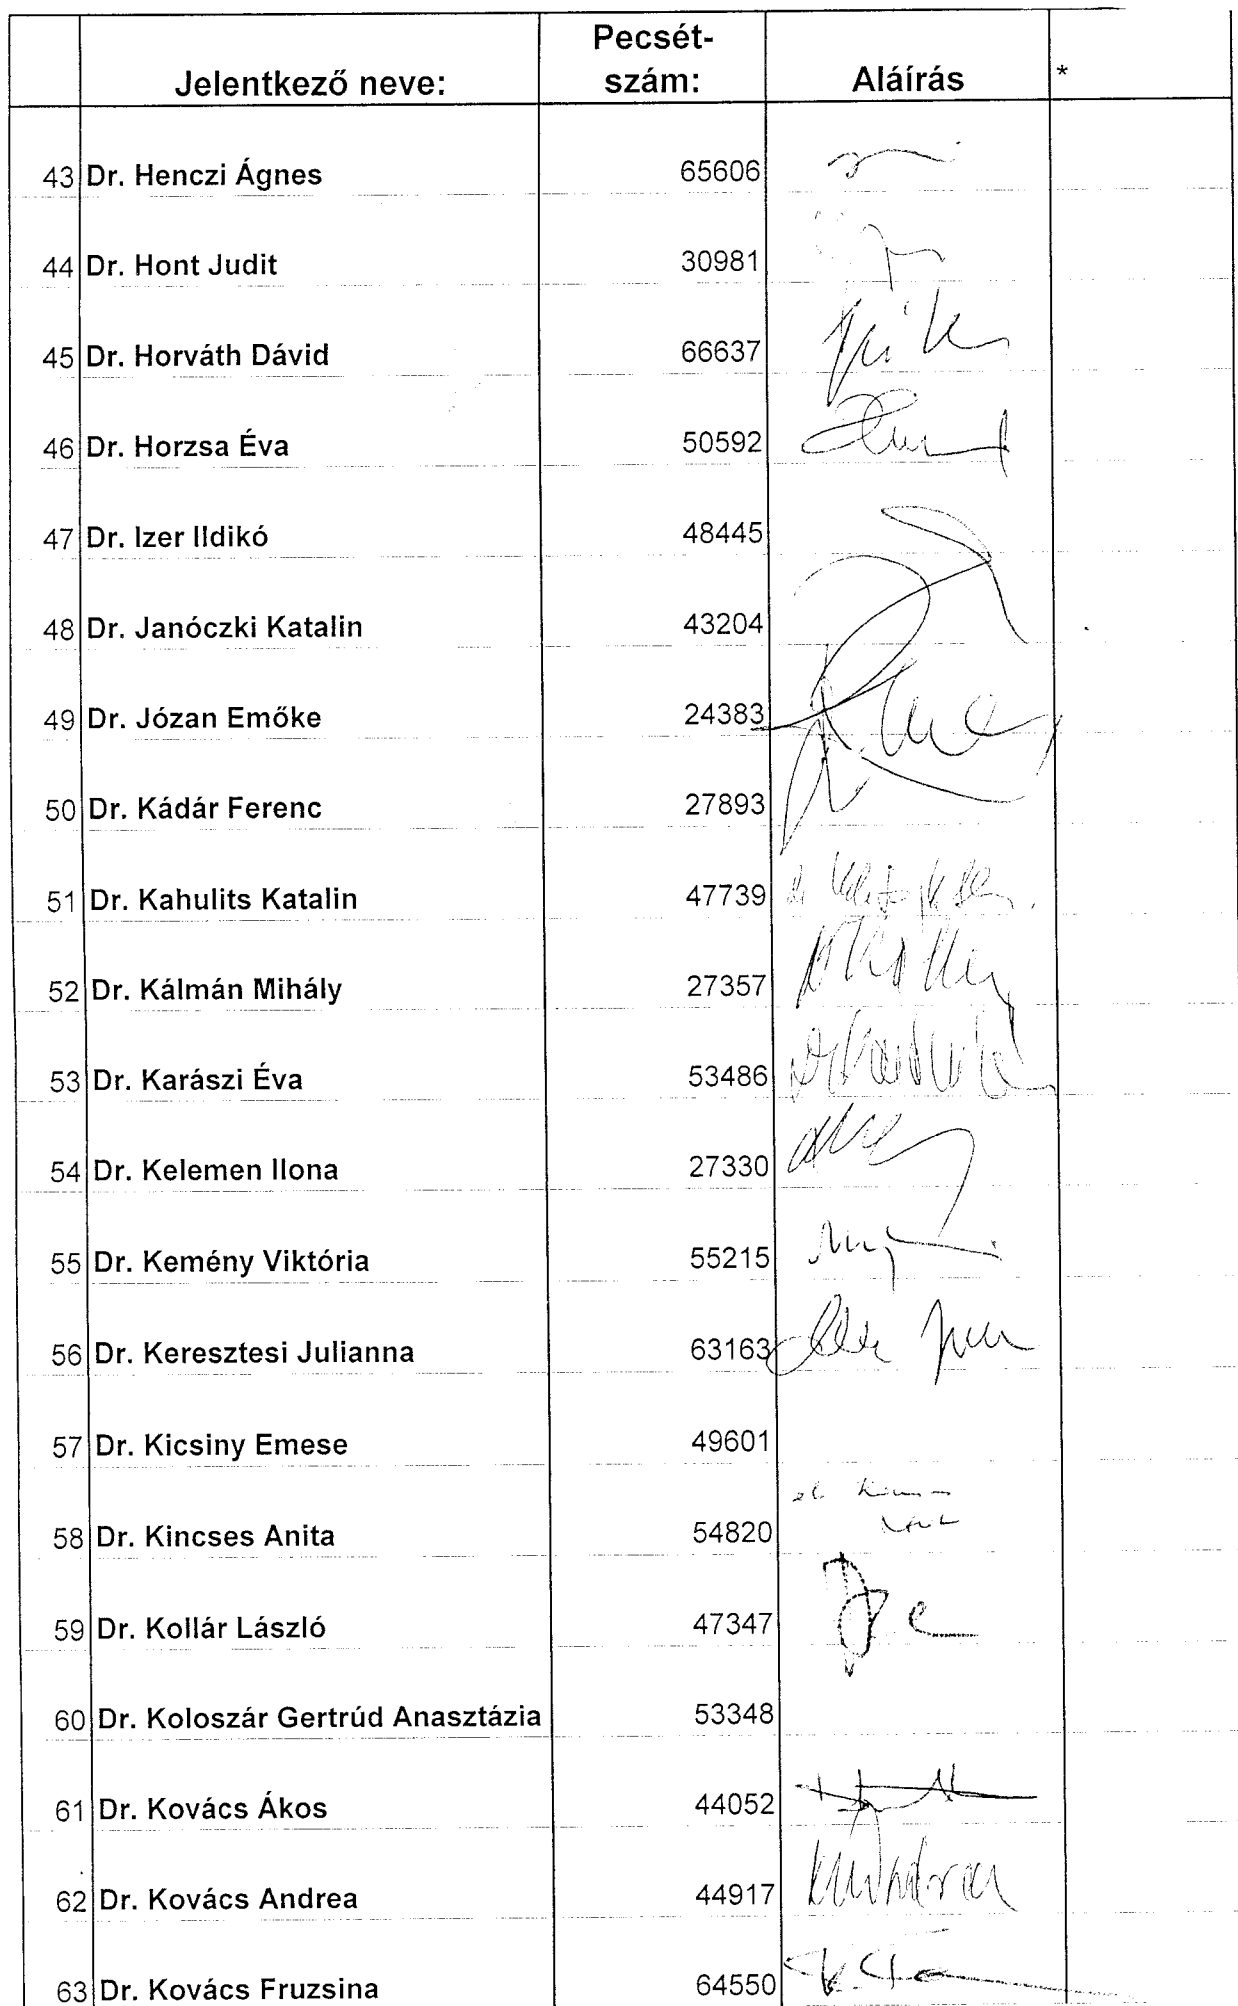 Jelentkező neve: Pecsét-szám: Aláírás *
43 Dr. Henczi Ágnes 65606
44 Dr. Hont Judit 30981
45 Dr. Horváth Dávid 66637
46 Dr. Horzsa Éva 50592
47 Dr. Izer Ildikó 48445
48 Dr. Janóczki Katalin 43204
49 Dr. Józan Emőke 24383
50 Dr. Kádár Ferenc 27893
51 Dr. Kahulits Katalin 47739
52 Dr. Kálmán Mihály 27357
53 Dr. Karászi Éva 53486
54 Dr. Kelemen Ilona 27330
55 Dr. Kemény Viktória 55215
56 Dr. Keresztesi Julianna 63163
57 Dr. Kicsiny Emese 49601
58 Dr. Kincses Anita 54820
59 Dr. Kollár László 47347
60 Dr. Koloszár Gertrúd Anasztázia 53348
61 Dr. Kovács Ákos 44052
62 Dr. Kovács Andrea 44917
63 Dr. Kovács Fruzsina 64550